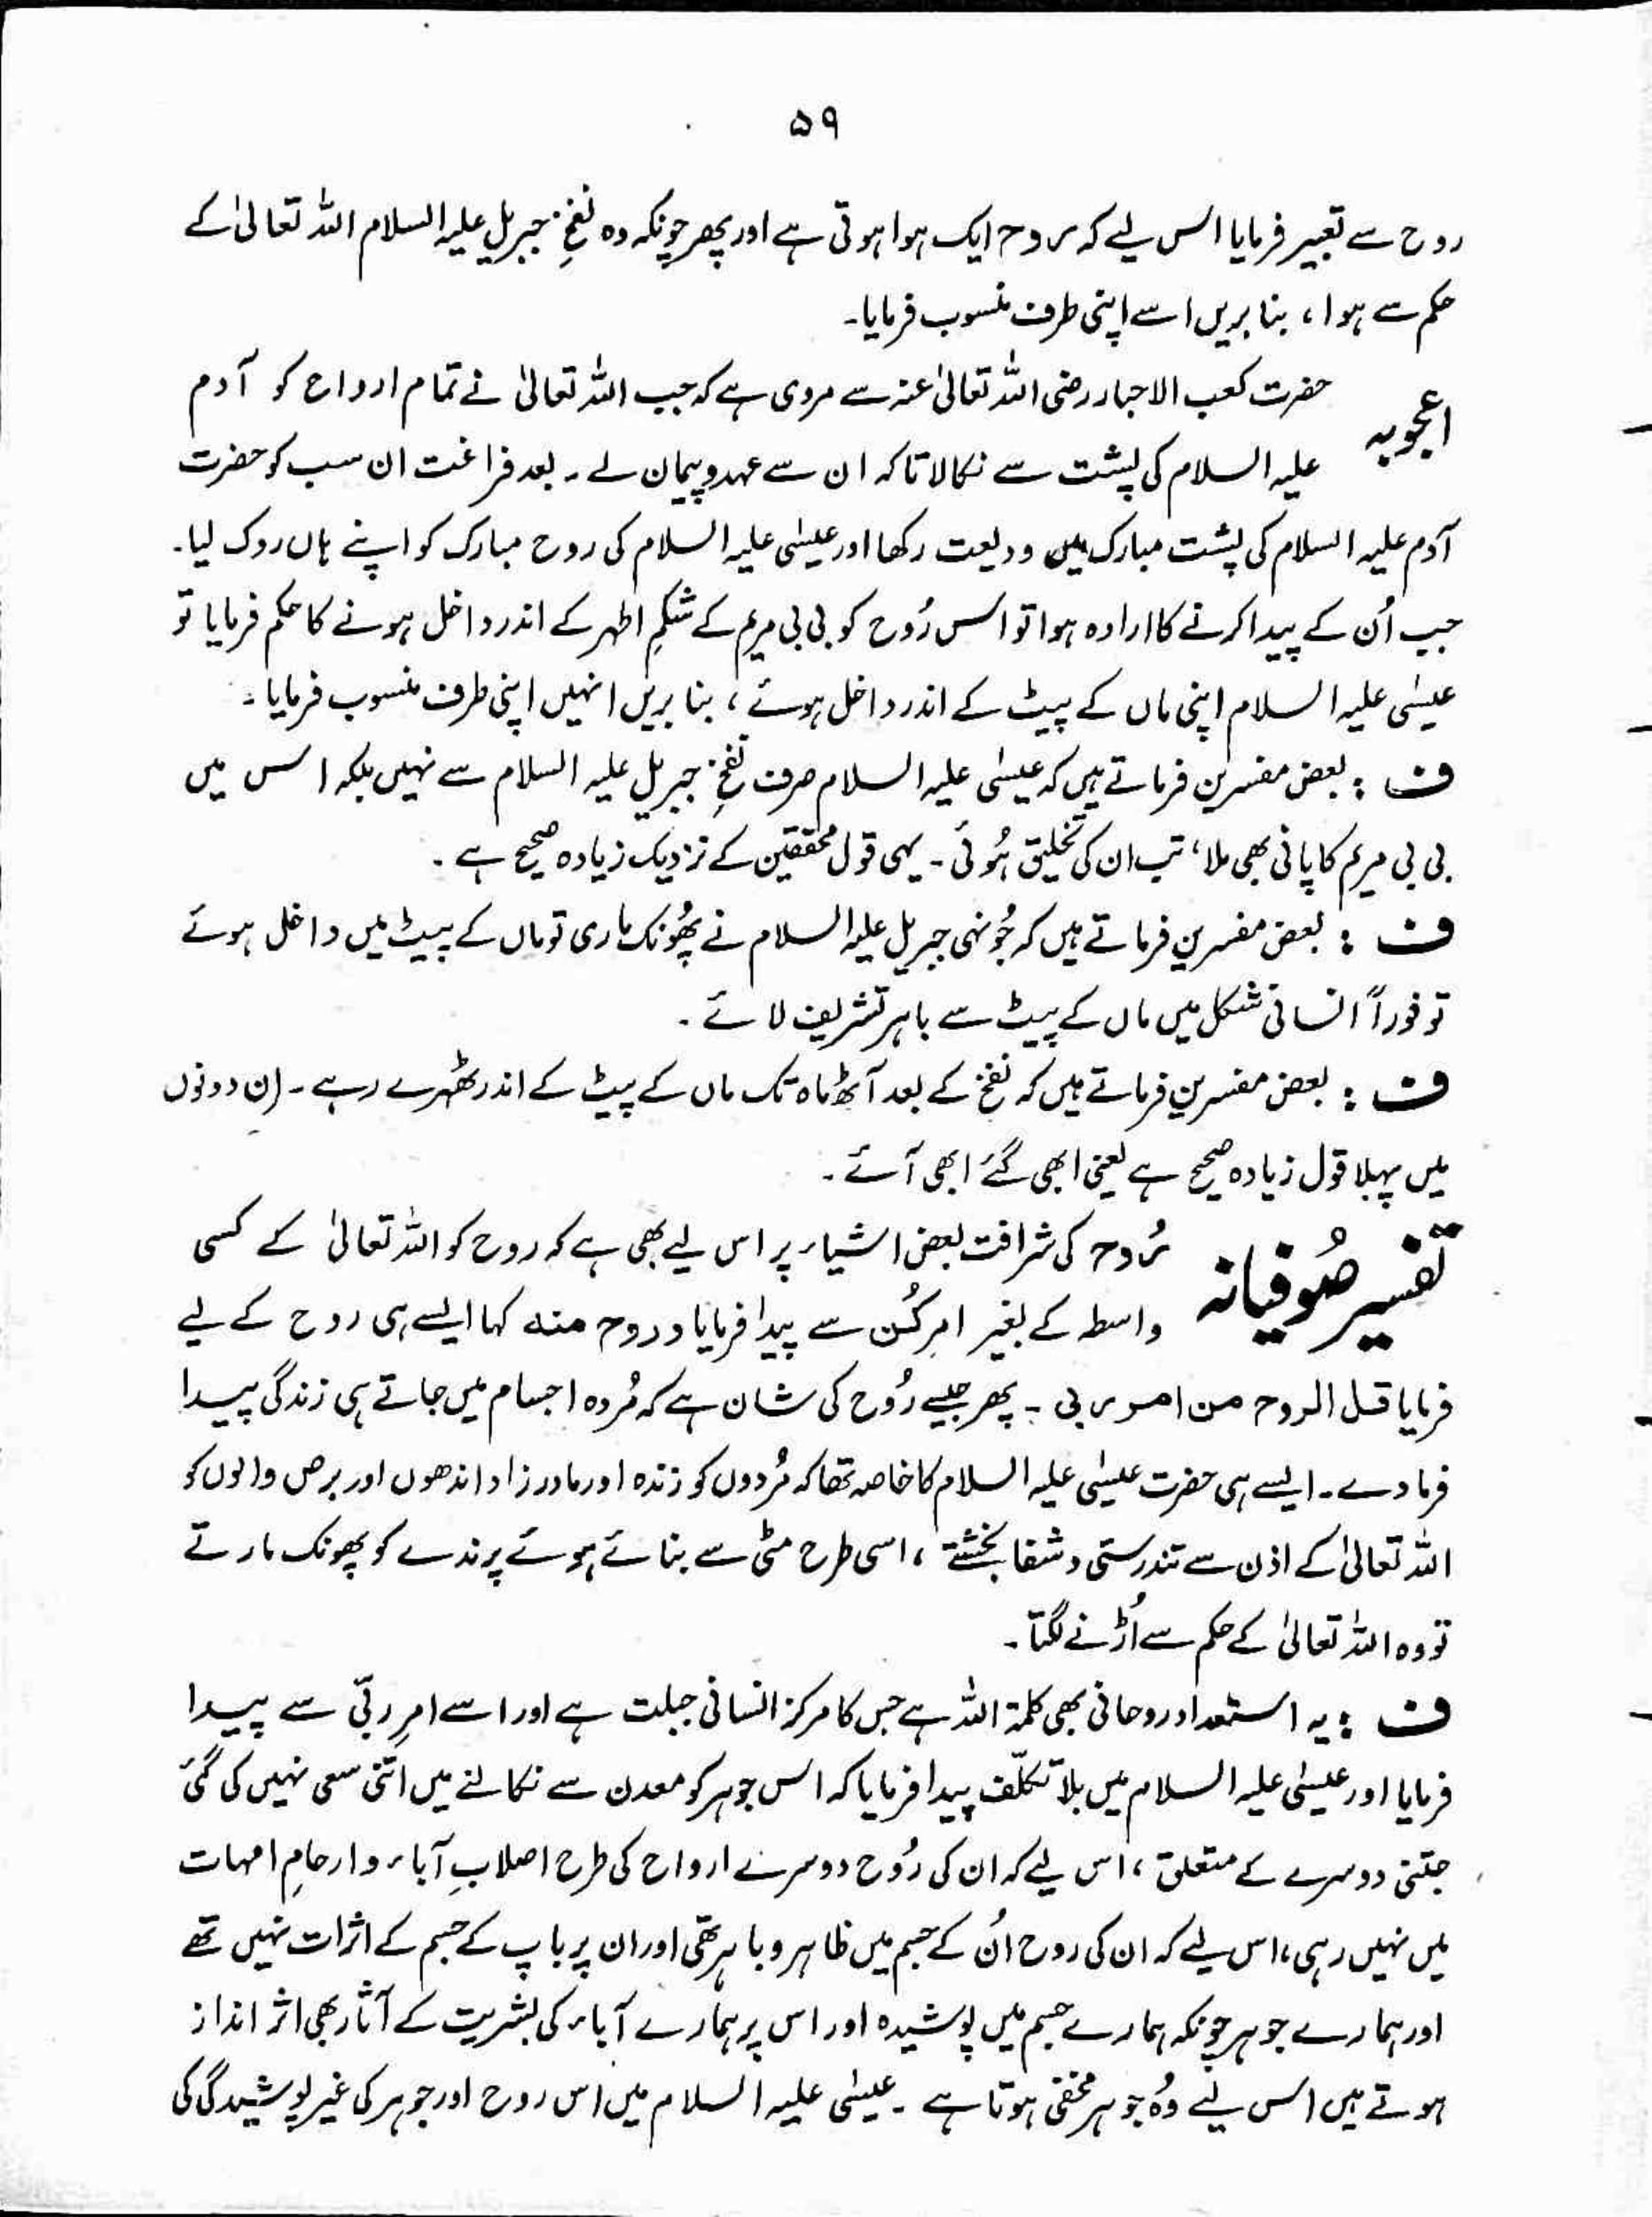 ۵۹
روح سے تعبیر فرمایا اس لیے کہ روح ایک ہوا ہوتی ہے اور پھر چونکہ وہ نفخِ جبریل علیہ السلام اللہ تعالیٰ کے
حکم سے ہوا، بنا بریں اسے اپنی طرف منسوب فرمایا۔
اعجوبہ
حضرت کعب الاحبار رضی اللہ تعالیٰ عنہ سے مروی ہے کہ جب اللہ تعالیٰ نے تمام ارواح کو آدم
علیہ السلام کی پشت سے نکالا تاکہ ان سے عہد و پیمان لے۔ بعد فراغت ان سب کو حضرت
آدم علیہ السلام کی پشت مبارک میں ودیعت رکھا اور عیسٰی علیہ السلام کی روح مبارک کو اپنے ہاں روک لیا۔
جب اُن کے پیدا کرنے کا ارادہ ہوا تو اس رُوح کو بی بی مریم کے شکمِ اطہر کے اندر داخل ہونے کا حکم فرمایا تو
عیسٰی علیہ السلام اپنی ماں کے پیٹ کے اندر داخل ہوئے، بنا بریں انہیں اپنی طرف منسوب فرمایا۔
ف : بعض مفسرین فرماتے ہیں کہ عیسٰی علیہ السلام صرف نفخِ جبریل علیہ السلام سے نہیں بلکہ اس میں
بی بی مریم کا پانی بھی ملا، تب ان کی تخلیق ہُوئی۔ یہی قول محققین کے نزدیک زیادہ صحیح ہے۔
ف : بعض مفسرین فرماتے ہیں کہ جُونہی جبریل علیہ السلام نے پھُونک ماری تو ماں کے پیٹ میں داخل ہوئے
تو فوراً انسانی شکل میں ماں کے پیٹ سے باہر تشریف لائے۔
ف : بعض مفسرین فرماتے ہیں کہ نفخ کے بعد آٹھ ماہ تک ماں کے پیٹ کے اندر ٹھہرے رہے۔ ان دونوں
میں پہلا قول زیادہ صحیح ہے یعنی ابھی گئے ابھی آئے۔
تفسیر صُوفیانہ
رُوح کی شرافت بعض اشیاء پر اس لیے بھی ہے کہ روح کو اللہ تعالیٰ کے کسی
واسطہ کے بغیر امرِ کُن سے پیدا فرمایا و روح منہ کہا ایسے ہی روح کے لیے
فرمایا قل الروح من امر ربی۔ پھر جیسے رُوح کی شان ہے کہ مُردہ اجسام میں جاتے ہی زندگی پیدا
فرما دے۔ ایسے ہی حضرت عیسٰی علیہ السلام کا خاصہ تھا کہ مُردوں کو زندہ اور مادر زاد اندھوں اور برص والوں کو
اللہ تعالیٰ کے اذن سے تندرستی و شفا بخشتے، اسی طرح مٹی سے بنائے ہوئے پرندے کو پھونک مارتے
تو وہ اللہ تعالیٰ کے حکم سے اُڑنے لگتا۔
ف : یہ استعداد روحانی بھی کلمۃ اللہ ہے جس کا مرکز انسانی جبلت ہے اور اسے امرِ ربّی سے پیدا
فرمایا اور عیسٰی علیہ السلام میں بلا تکلّف پیدا فرمایا کہ اس جوہر کو معدن سے نکالنے میں اتنی سعی نہیں کی گئی
جتنی دوسرے کے متعلق، اس لیے کہ ان کی رُوح دوسرے ارواح کی طرح اصلابِ آباء و ارحامِ امہات
میں نہیں رہی، اس لیے کہ ان کی روح اُن کے جسم میں ظاہر و باہر تھی اور ان پر باپ کے جسم کے اثرات نہیں تھے
اور ہمارے جوہر چونکہ ہمارے جسم میں پوشیدہ اور اس پر ہمارے آباء کی بشریت کے آثار بھی اثر انداز
ہوتے ہیں اس لیے وُہ جوہر مخفی ہوتا ہے۔ عیسٰی علیہ السلام میں اس روح اور جوہر کی غیر پوشیدگی کی